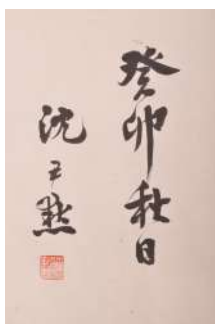 癸卯秋日
沈尹默